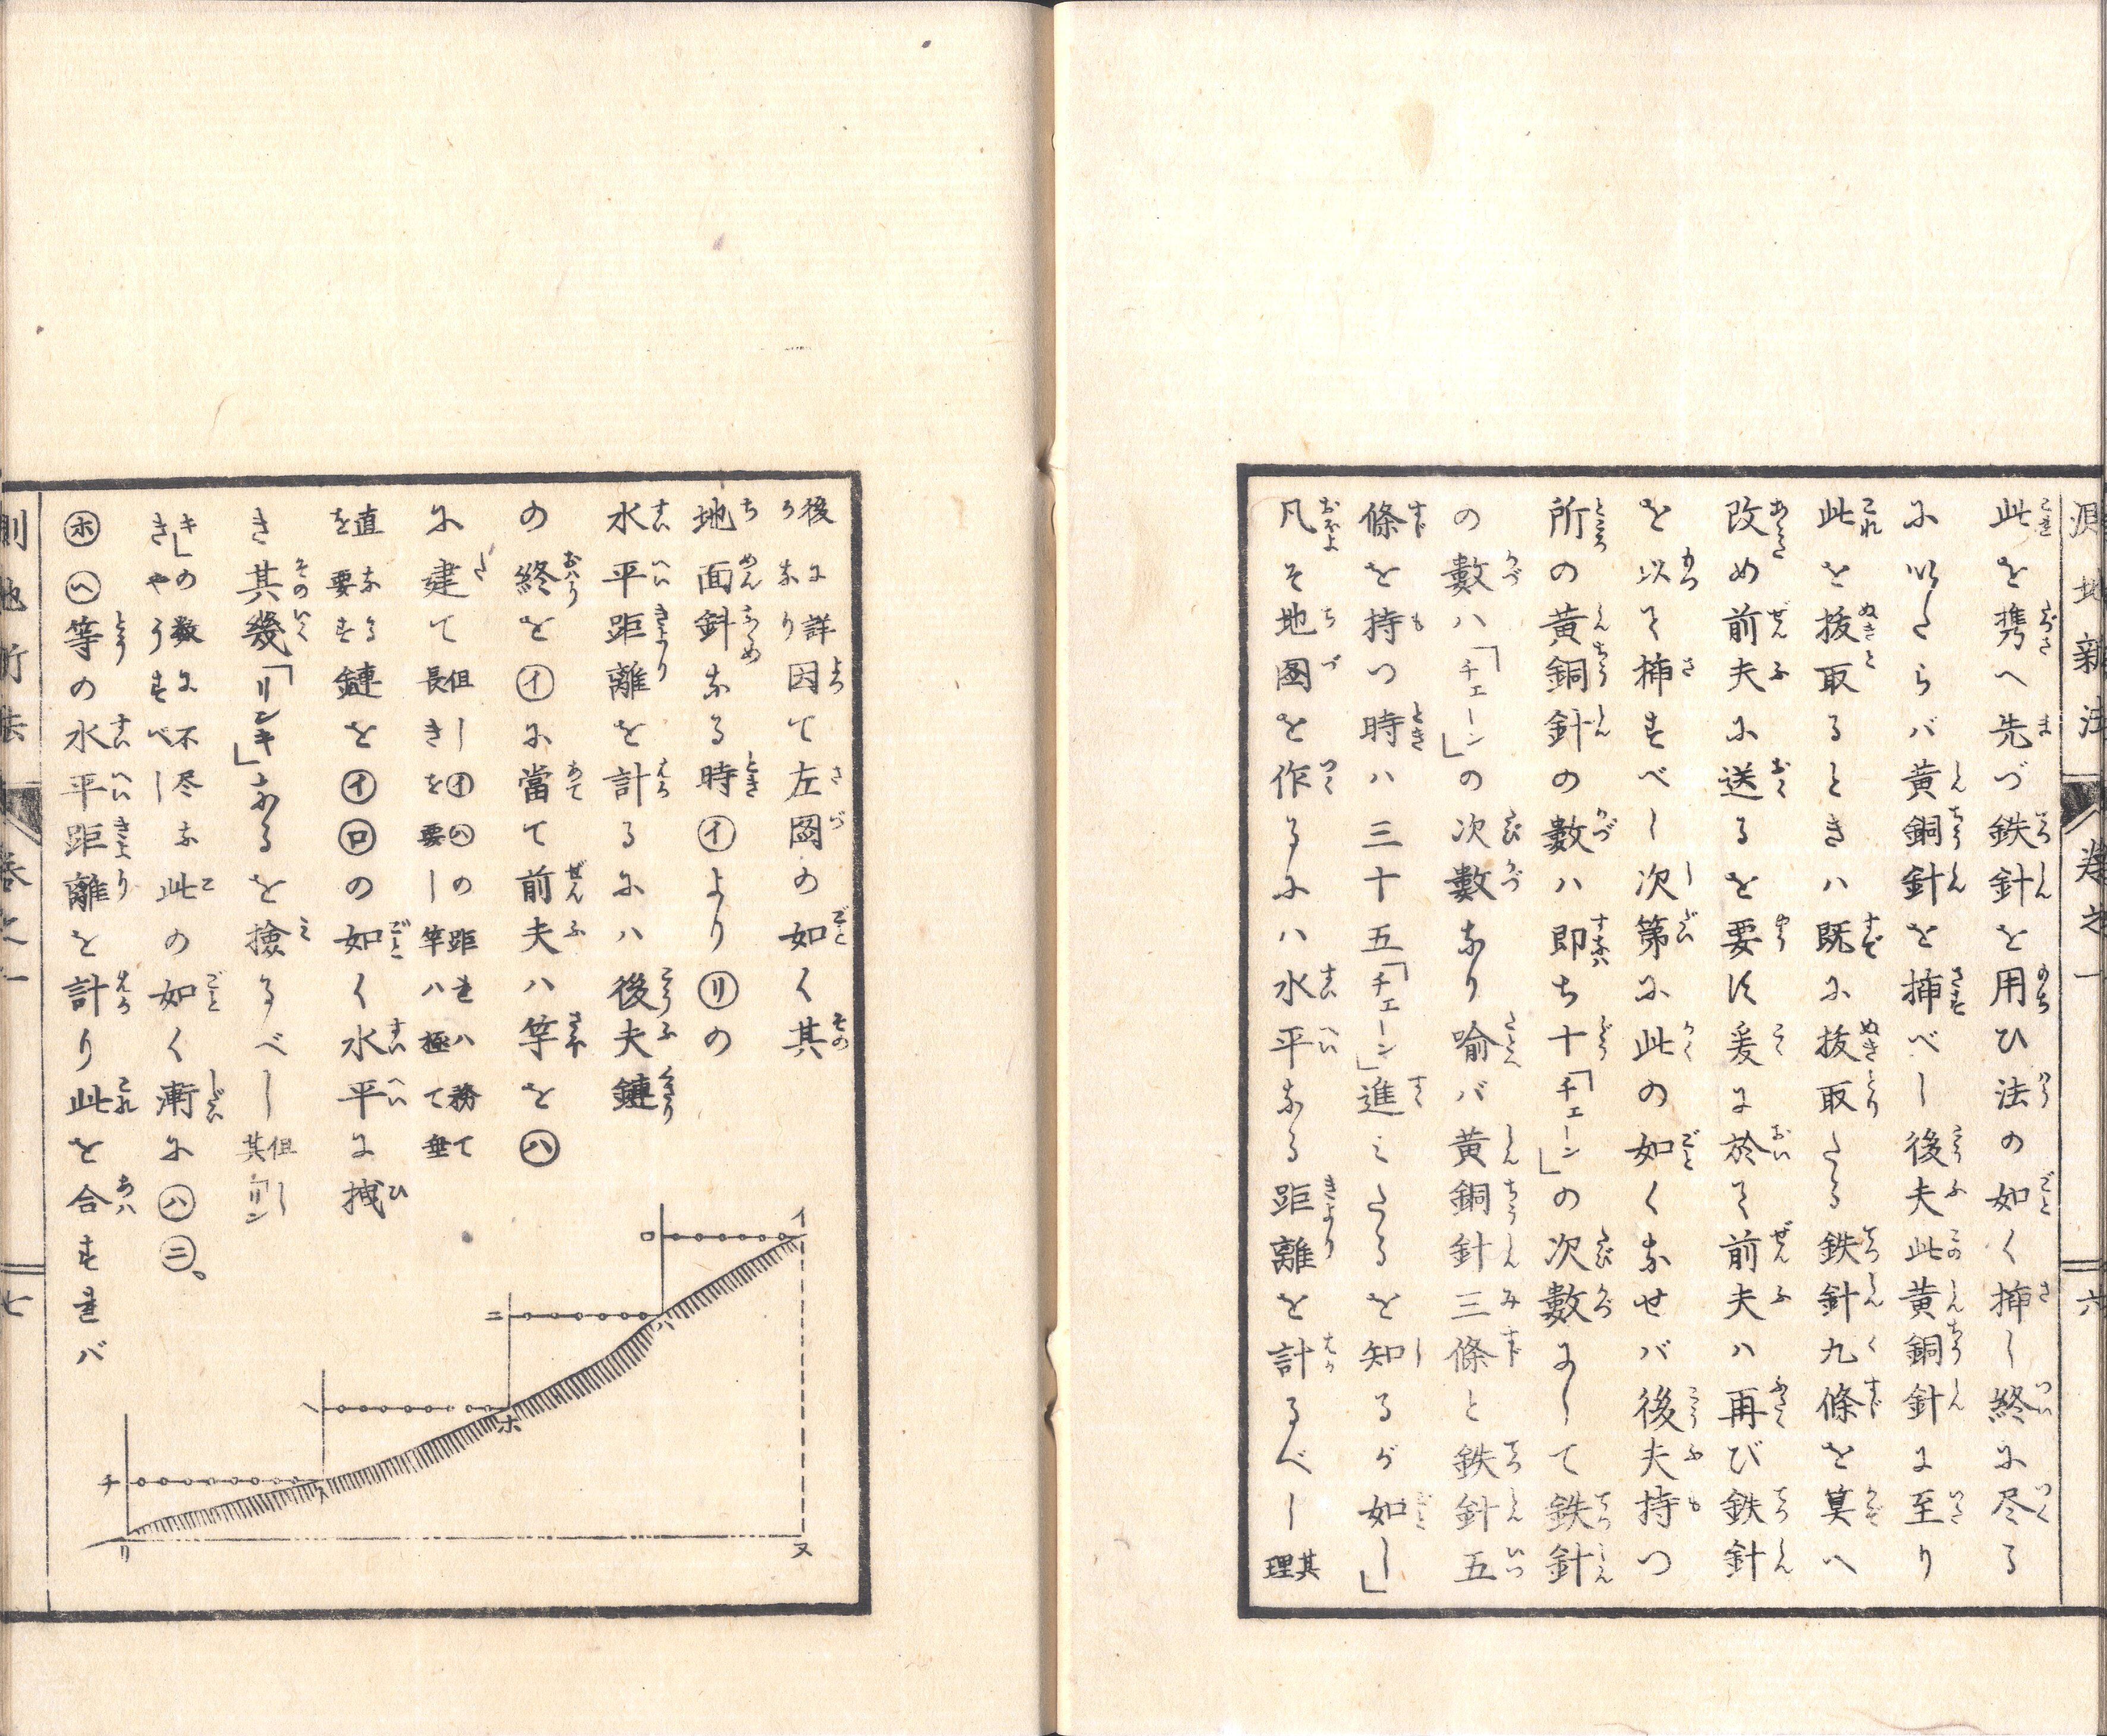 測地新法 卷之一 六
此を携へ先づ鉄針を用ひ法の如く揷し終に尽る
に以たらバ黄銅針を揷べし後夫此黄銅針に至り
此を抜取るときハ既に抜取たる鉄針九條を算へ
改め前夫に送るを要す爰に於て前夫ハ再び鉄針
を以て揷すべし次第に此の如くなせバ後夫持つ
所の黄銅針の數ハ即ち十「チェーン」の次數にして鉄針
の數ハ「チェーン」の次數なり喻バ黄銅針三條と鉄針五
條を持つ時ハ三十五「チェーン」進ミたるを知るが如し」
凡そ地圖を作るにハ水平なる距離を計るべし其理
後に詳かなり因て左圖の如く其
地面斜なる時㋑より㋷の
水平距離を計るにハ後夫鏈
の終を㋑に當て前夫ハ竿を㋩
に建て但し㋑㋩の距離ハ務て長きを要し竿ハ極て垂
直なるを要す鏈を㋑㋺の如く水平に拽
き其幾「リンキ」あるを撿るべし但し其「リン
キ」の数に不尽なきやうすべし此の如く漸に㋩㋥。
㋭㋬等の水平距離を計り此を合すれバ
測地新法 卷之一 七
イ
ロ
ハ
ニ
ホ
ヘ
ト
チ
リ
ヌ